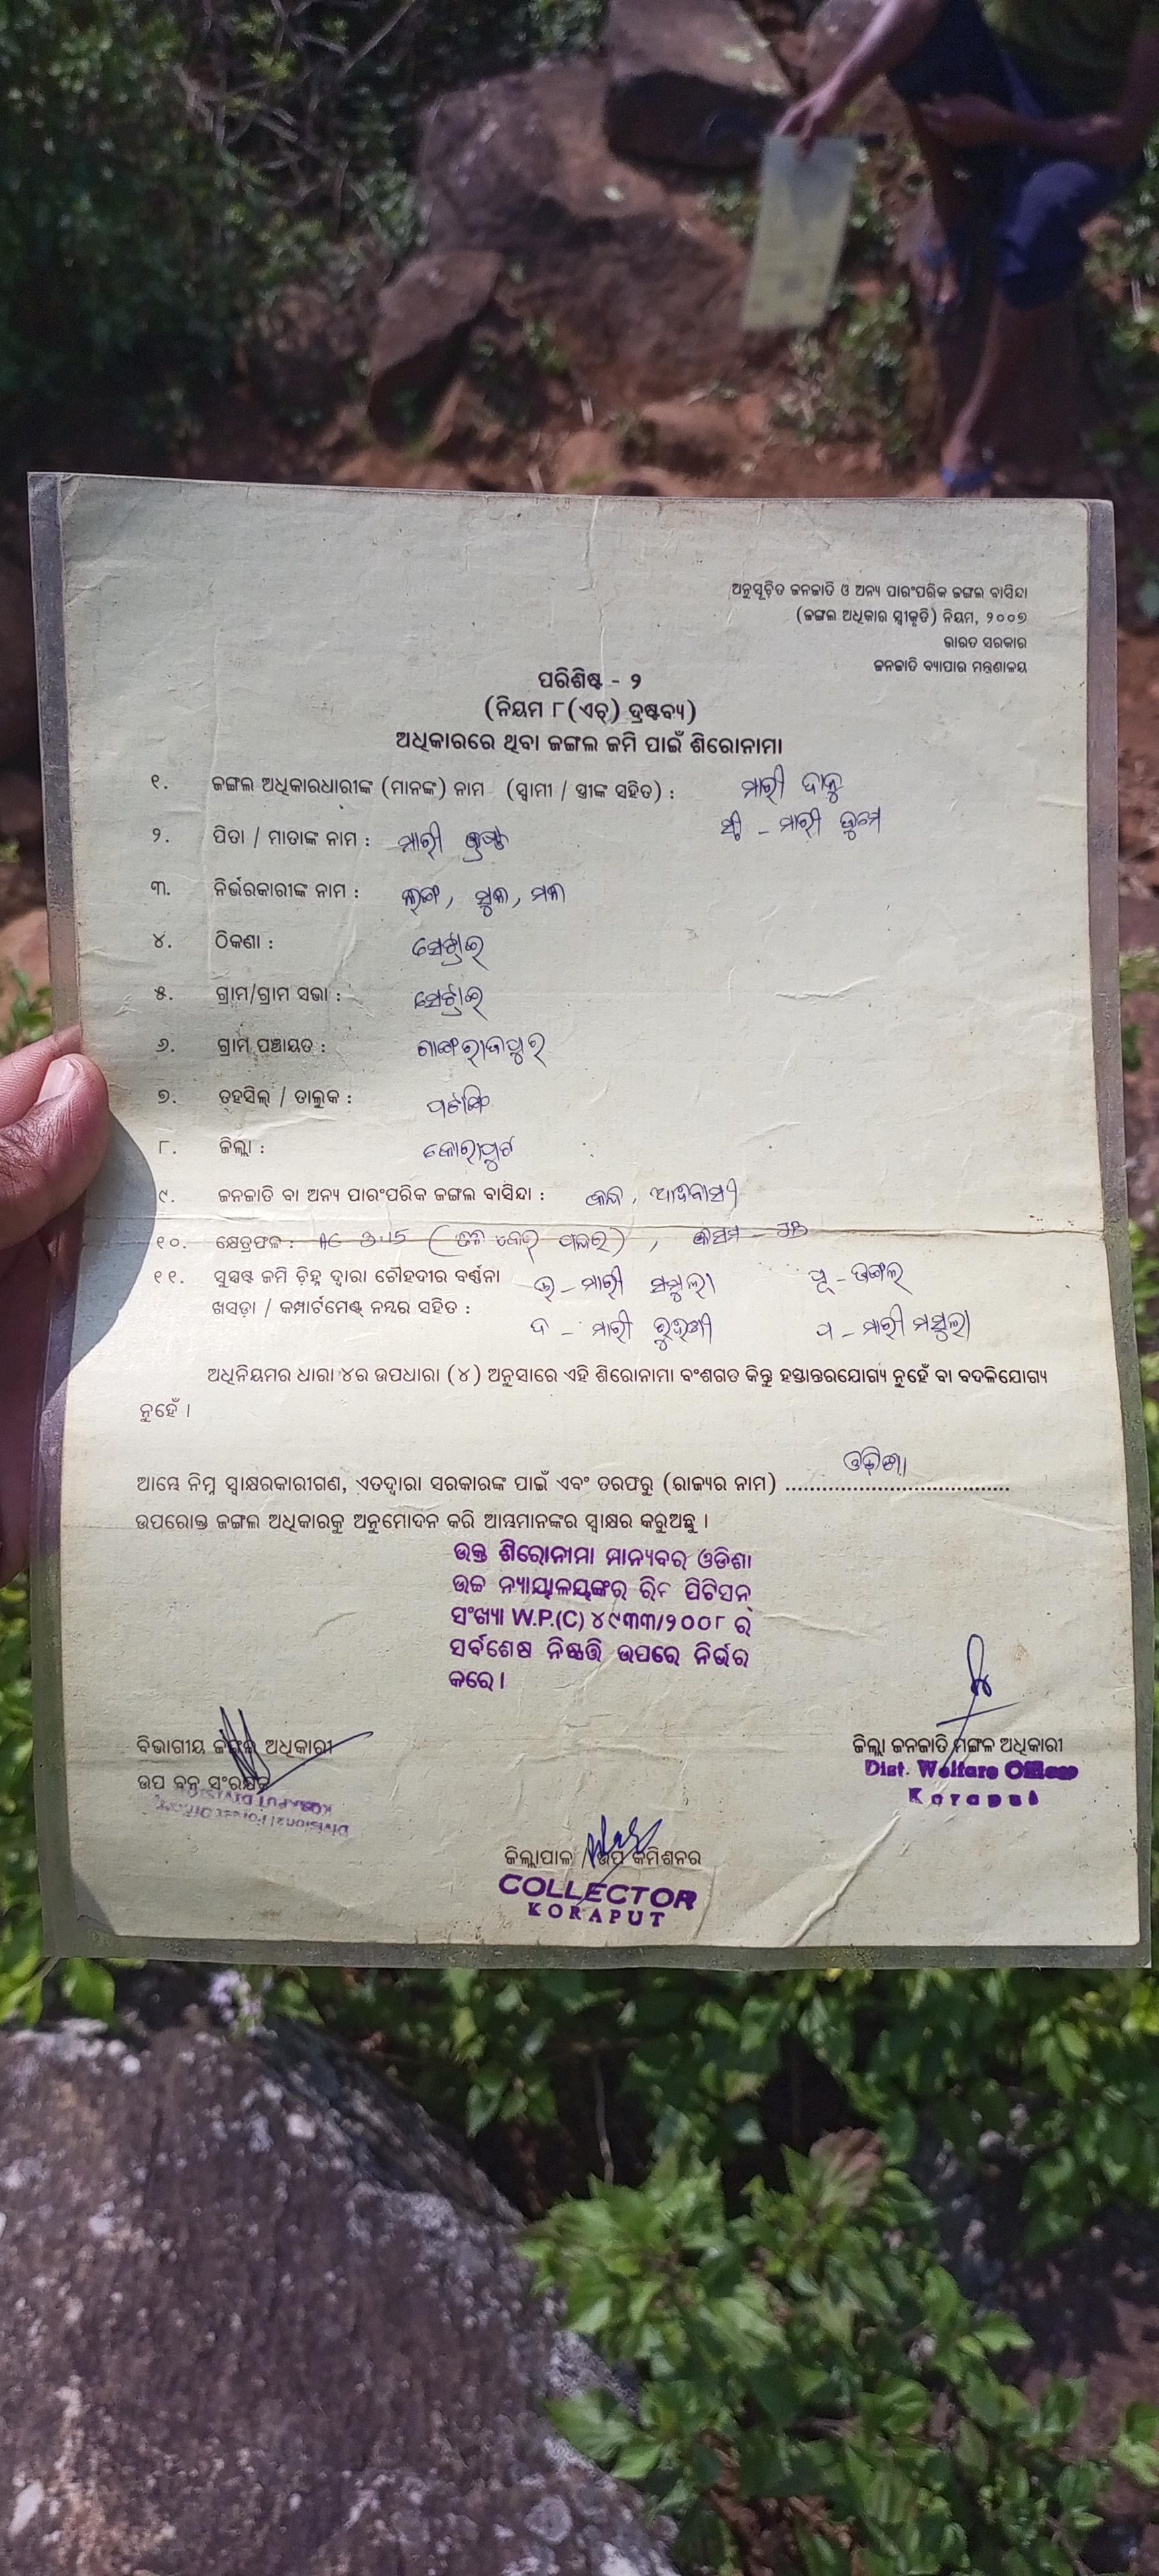 ଅନୁସୂଚିତ ଜନଜାତି ଓ ଅନ୍ୟ ପାରଂପରିକ ଜଙ୍ଗଲ ବାସିନ୍ଦା
(ଜଙ୍ଗଲ ଅଧିକାର ସ୍ୱୀକୃତି) ନିୟମ, ୨୦୦୭
ଭାରତ ସରକାର
ଜନଜାତି ବ୍ୟାପାର ମନ୍ତ୍ରଣାଳୟ
ପରିଶିଷ୍ଟ - ୨
(ନିୟମ ୮(ଏଚ୍) ଦ୍ରଷ୍ଟବ୍ୟ)
ଅଧିକାରରେ ଥିବା ଜଙ୍ଗଲ ଜମି ପାଇଁ ଶିରୋନାମା
୧. ଜଙ୍ଗଲ ଅଧିକାରଧାରୀଙ୍କ (ମାନଙ୍କ) ନାମ (ସ୍ୱାମୀ / ସ୍ତ୍ରୀଙ୍କ ସହିତ) : ମାରୀ ଦାନୁ
ସ୍ତ୍ରୀ - ମାରୀ
୨. ପିତା / ମାତାଙ୍କ ନାମ : ମାରୀ
୩. ନିର୍ଭରକାରୀଙ୍କ ନାମ :
୪. ଠିକଣା :
୫. ଗ୍ରାମ/ଗ୍ରାମ ସଭା :
୬. ଗ୍ରାମ ପଞ୍ଚାୟତ : ଗାଙ୍ଗରାଜପୁର
୭. ତହସିଲ୍ / ତାଲୁକ : ପଟାଙ୍ଗି
୮. ଜିଲ୍ଲା : କୋରାପୁଟ
୯. ଜନଜାତି ବା ଅନ୍ୟ ପାରଂପରିକ ଜଙ୍ଗଲ ବାସିନ୍ଦା : ଆଦିବାସୀ
୧୦. କ୍ଷେତ୍ରଫଳ :
୧୧. ସୁସ୍ପଷ୍ଟ ଜମି ଚିହ୍ନ ଦ୍ୱାରା ଚୌହଦୀର ବର୍ଣ୍ଣନା ଉ - ମାରୀ ପୂ - ଜଙ୍ଗଲ
ଖସଡ଼ା / କମ୍ପାର୍ଟମେଣ୍ଟ ନମ୍ବର ସହିତ : ଦ - ମାରୀ ପ - ମାରୀ
ଅଧିନିୟମର ଧାରା ୪ର ଉପଧାରା (୪) ଅନୁସାରେ ଏହି ଶିରୋନାମା ବଂଶଗତ କିନ୍ତୁ ହସ୍ତାନ୍ତରଯୋଗ୍ୟ ନୁହେଁ ବା ବଦଳିଯୋଗ୍ୟ
ନୁହେଁ ।
ଆମ୍ଭେ ନିମ୍ନ ସ୍ୱାକ୍ଷରକାରୀଗଣ, ଏତଦ୍ଦ୍ୱାରା ସରକାରଙ୍କ ପାଇଁ ଏବଂ ତରଫରୁ (ରାଜ୍ୟର ନାମ) ଓଡ଼ିଶା
ଉପରୋକ୍ତ ଜଙ୍ଗଲ ଅଧିକାରକୁ ଅନୁମୋଦନ କରି ଆମ୍ଭମାନଙ୍କର ସ୍ୱାକ୍ଷର କରୁଅଛୁ ।
ଉକ୍ତ ଶିରୋନାମା ମାନ୍ୟବର ଓଡିଶା
ଉଚ୍ଚ ନ୍ୟାୟାଳୟଙ୍କର ରିଟ ପିଟିସନ୍
ସଂଖ୍ୟା W.P.(C) ୪୯୩୩/୨୦୦୮ ର
ସର୍ବଶେଷ ନିଷ୍ପତ୍ତି ଉପରେ ନିର୍ଭର
କରେ ।
ବିଭାଗୀୟ ଜଙ୍ଗଲ ଅଧିକାରୀ
ଉପ ବନ ସଂରକ୍ଷକ
Divisional Forest Officer
KORAPUT DIVISION
ଜିଲ୍ଲା ଜନଜାତି ମଙ୍ଗଳ ଅଧିକାରୀ
Dist. Welfare Officer
Koraput
ଜିଲ୍ଲାପାଳ / ଉପ କମିଶନର
COLLECTOR
KORAPUT